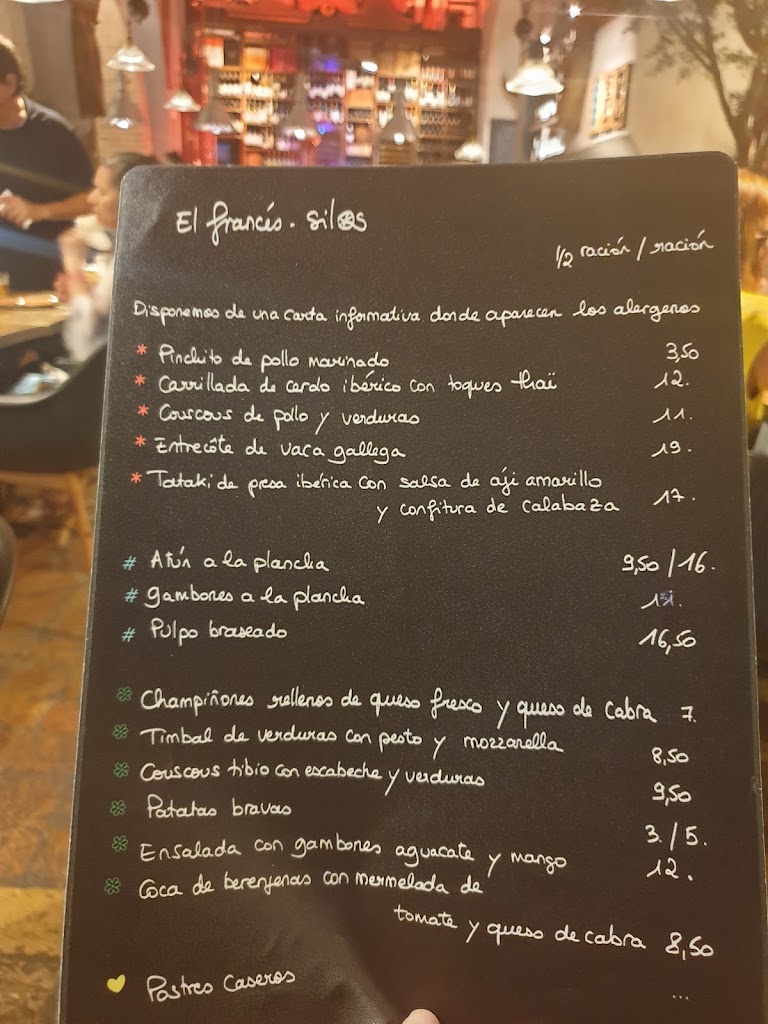 El francés. Silos
1/2 ración / ración
Disponemos de una carta informativa donde aparecen los alergenos
* Pinchito de pollo marinado 3,50
* Carrillada de cerdo ibérico con toques thaï 12.
* Couscous de pollo y verduras 11.
* Entrecôte de vaca gallega 19.
* Tataki de presa ibérica con salsa de aji amarillo
y confitura de calabaza 17.
# Atún a la plancha 9,50 / 16.
# gambones a la plancha
# Pulpo braseado 16,50
Champiñones rellenos de queso fresco y queso de cabra 7.
Timbal de verduras con pesto y mozzarella 8,50
Couscous tibio con escabeche y verduras 9,50
Patatas bravas 3. / 5.
Ensalada con gambones aguacate y mango 12.
Coca de berenjenas con mermelada de
tomate y queso de cabra 8,50
Postres Caseros ...